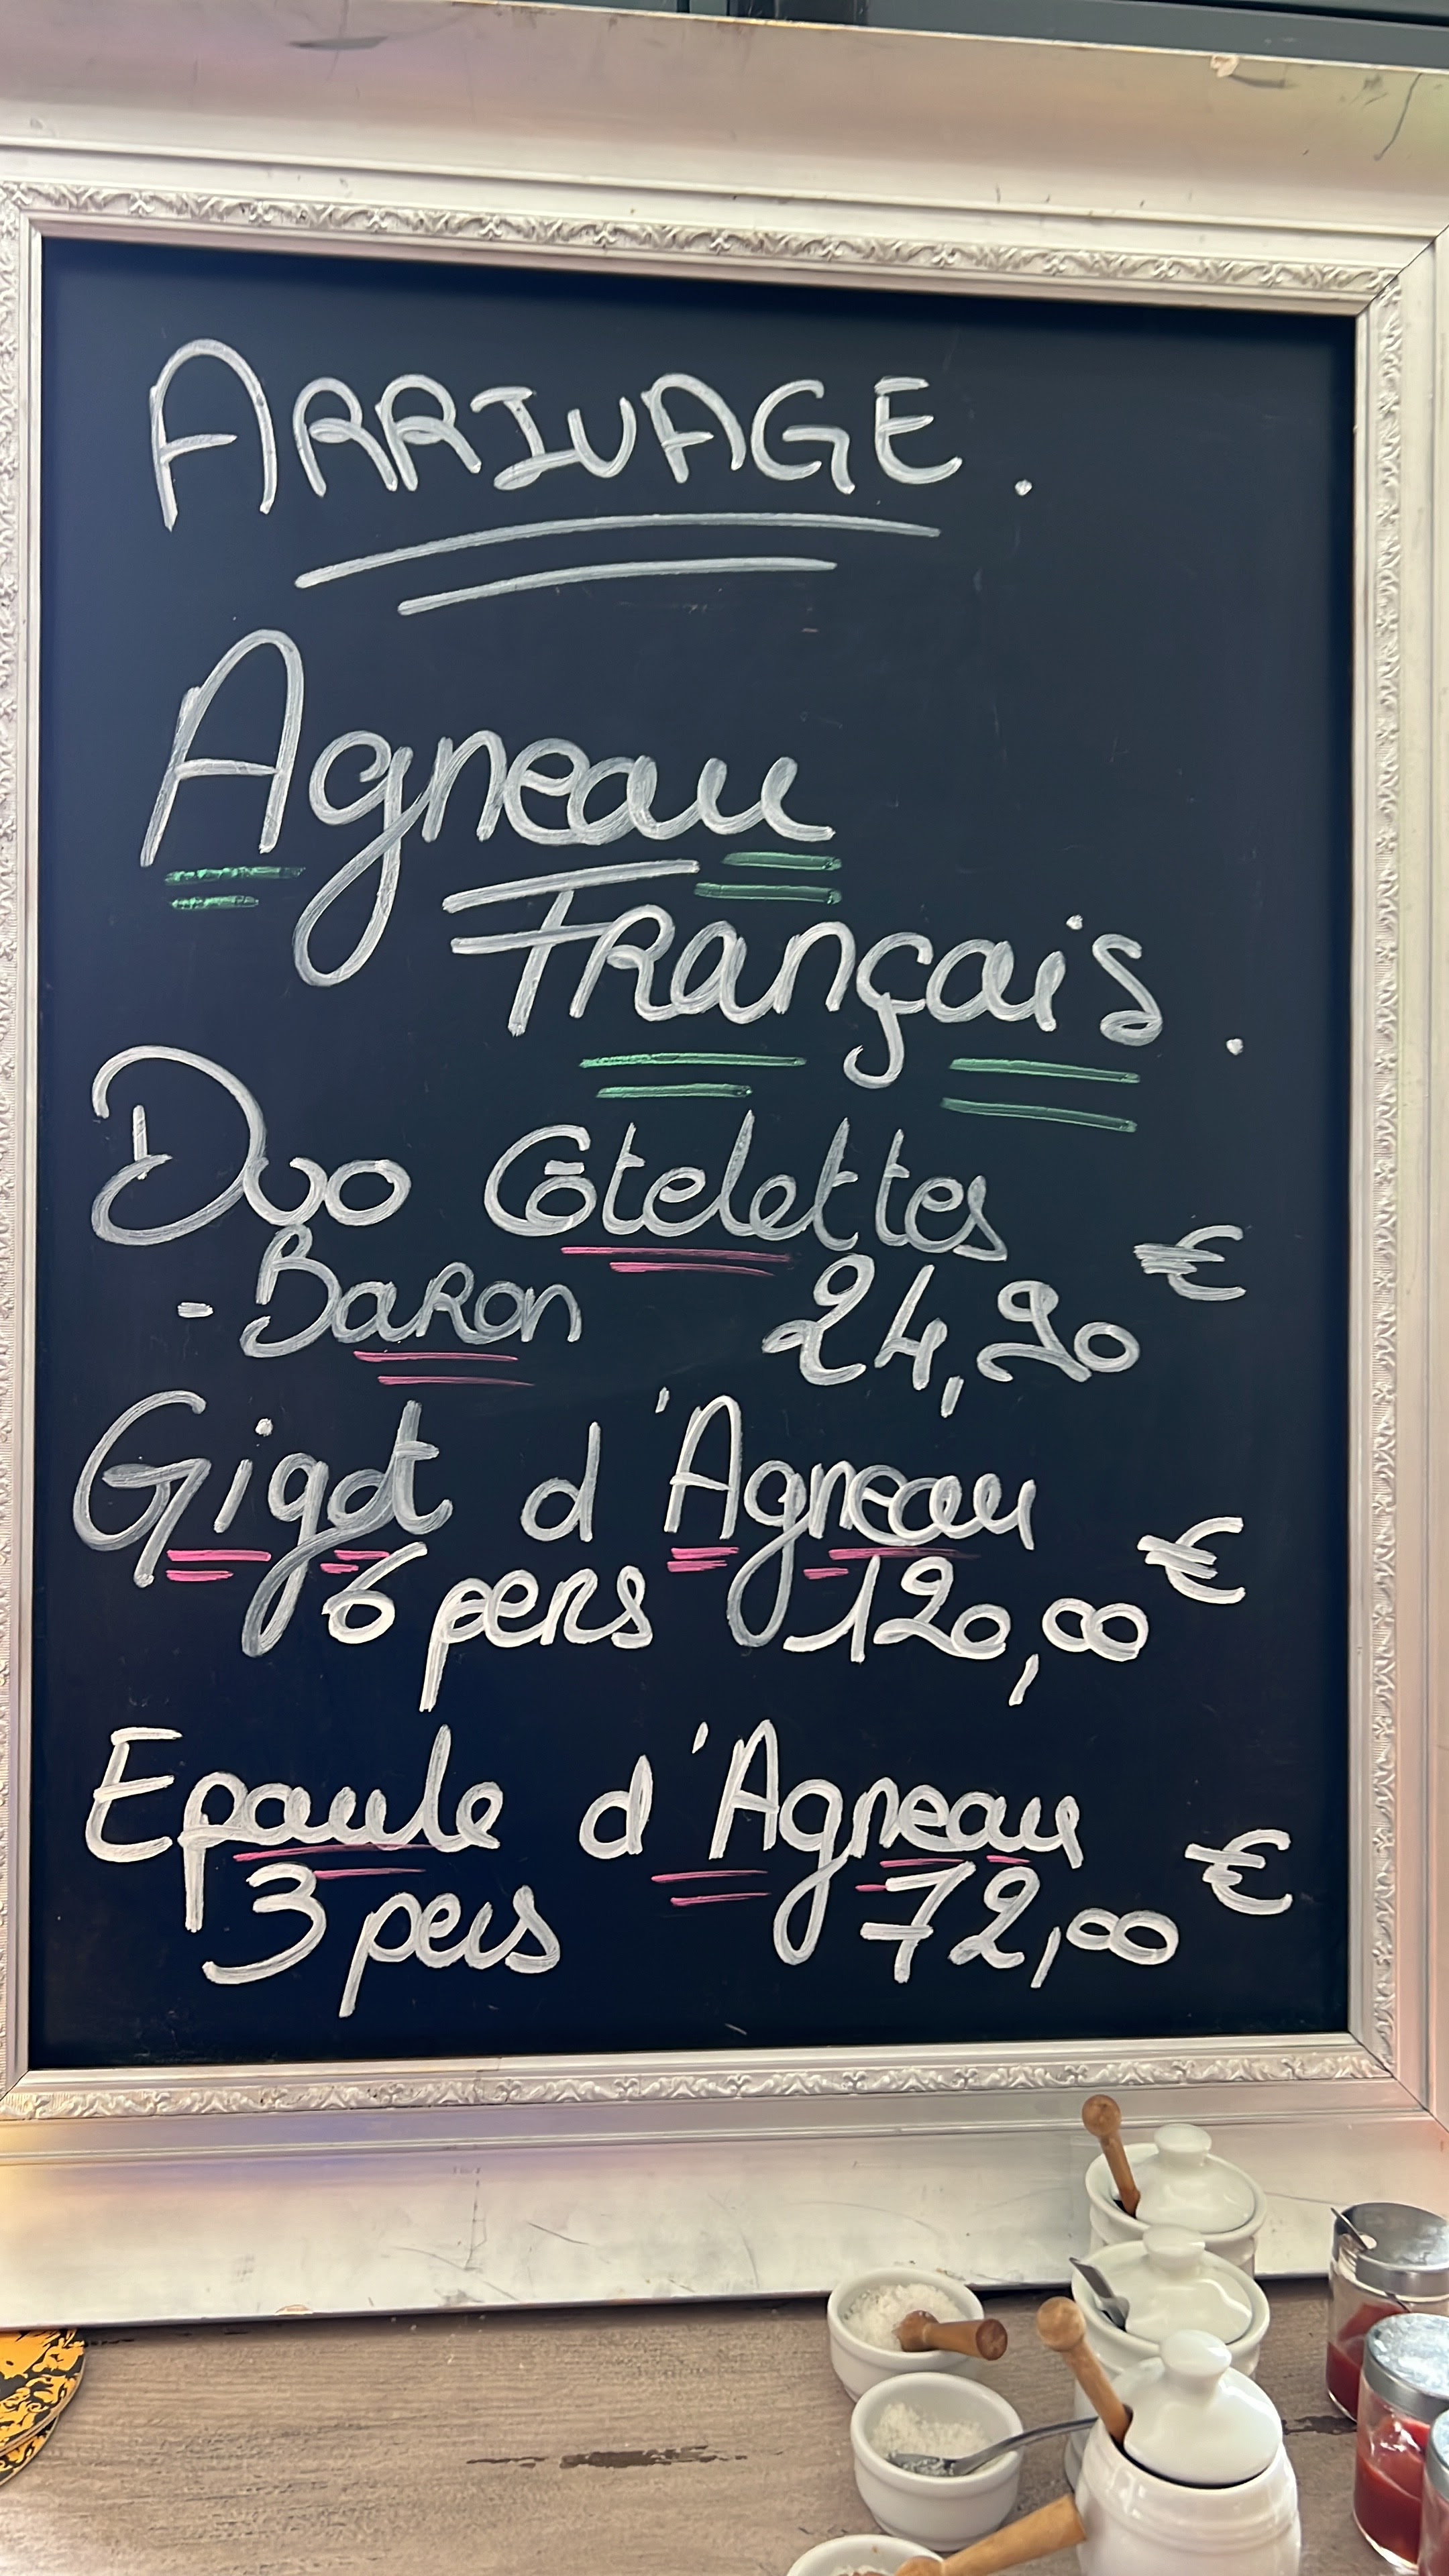 ARRIVAGE.
Agneau
Français.
Duo Côtelettes
- Baron 24,90 €
Gigot d'Agneau
6 pers 120,00 €
Epaule d'Agneau
3 pers 72,00 €